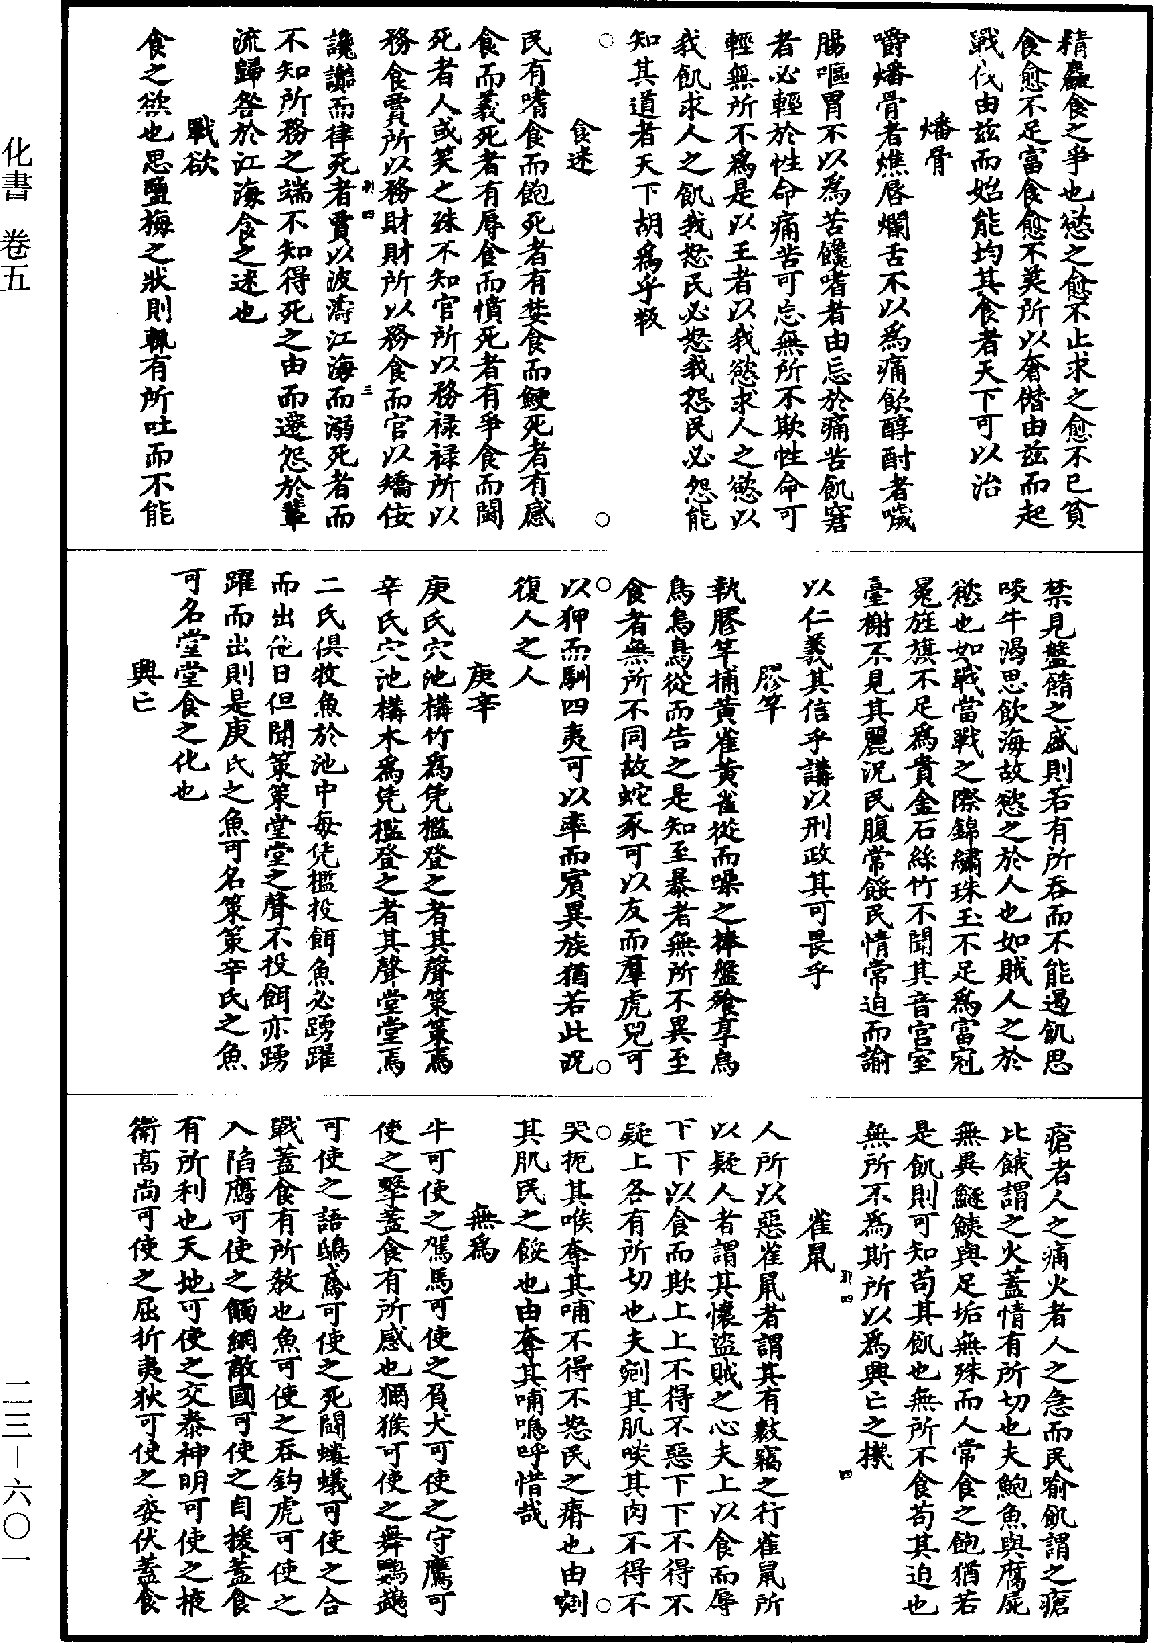 化書 卷五
二三—六〇一
精麤食之爭也慾之愈不止求之愈不已貧
食愈不足富食愈不美所以奢僭由茲而起
戰伐由茲而始能均其食者天下可以治
燔骨
嚼燔骨者燋唇爛舌不以爲痛飲醇酎者噦
腸嘔胃不以爲苦饞嗜者由忘於痛苦飢窘
者必輕於性命痛苦可忘無所不欺性命可
輕無所不爲是以王者以我慾求人之慾以
我飢求人之飢我怒民必怒我怨民必怨能
知其道者天下胡爲乎叛
食迷
民有嗜食而飽死者有婪食而鯁死者有感
食而義死者有辱食而憤死者有爭食而鬬
死者人或笑之殊不知官所以務禄禄所以
務食賈所以務財財所以務食而官以矯佞
讒讟而律死者賈以波濤江海而溺死者而
不知所務之端不知得死之由而遷怨於輩
流歸咎於江海食之迷也
戰欲
食之欲也思鹽梅之狀則輒有所吐而不能
禁見盤餚之盛則若有所吞而不能遏飢思
啖牛渴思飲海故慾之於人也如賊人之於
慾也如戰當戰之際錦繡珠玉不足爲富冠
冕旌旗不足爲貴金石絲竹不聞其音宫室
臺榭不見其麗況民腹常餒民情常迫而諭
以仁義其信乎講以刑政其可畏乎
膠竿
執膠竿捕黄雀黄雀從而噪之捧盤飱享烏
烏烏烏從而告之是知至暴者無所不異至
食者無所不同故蛇豕可以友而羣虎兕可
以狎而馴四夷可以率而賓異族猶若此況
復人之人
庚辛
庚氏穴池構竹爲凭檻登之者其聲策策焉
辛氏穴池構木爲凭檻登之者其聲堂堂焉
二氏俱牧魚於池中每凭檻投餌魚必踴躍
而出他日但聞策策堂堂之聲不投餌亦踴
躍而出則是庚氏之魚可名策策辛氏之魚
可名堂堂食之化也
興亡
瘡者人之痛火者人之急而民喻飢謂之瘡
比餓謂之火蓋情有所切也夫鮑魚與腐屍
無異鱁鮧與足垢無殊而人常食之飽猶若
是飢則可知苟其飢也無所不食苟其迫也
無所不爲斯所以爲興亡之機
雀鼠
人所以惡雀鼠者謂其有敫竊之行雀鼠所
以疑人者謂其懷盜賊之心夫上以食而辱
下下以食而欺上上不得不惡下下不得不
疑上各有所切也夫剜其肌啖其肉不得不
哭扼其喉奪其哺不得不怒民之瘠也由剜
其肌民之餒也由奪其哺嗚呼惜哉
無爲
牛可使之駕馬可使之負犬可使之守鷹可
使之擊蓋食有所感也獼猴可使之舞鸚鵡
可使之語鴟鳶可使之死鬬螻蟻可使之合
戰蓋食有所教也魚可使之吞鈎虎可使之
入陷鴈可使之觸網敵國可使之自援蓋食
有所利也天地可使之交泰神明可使之掖
衛高尚可使之屈折夷狄可使之委伏蓋食